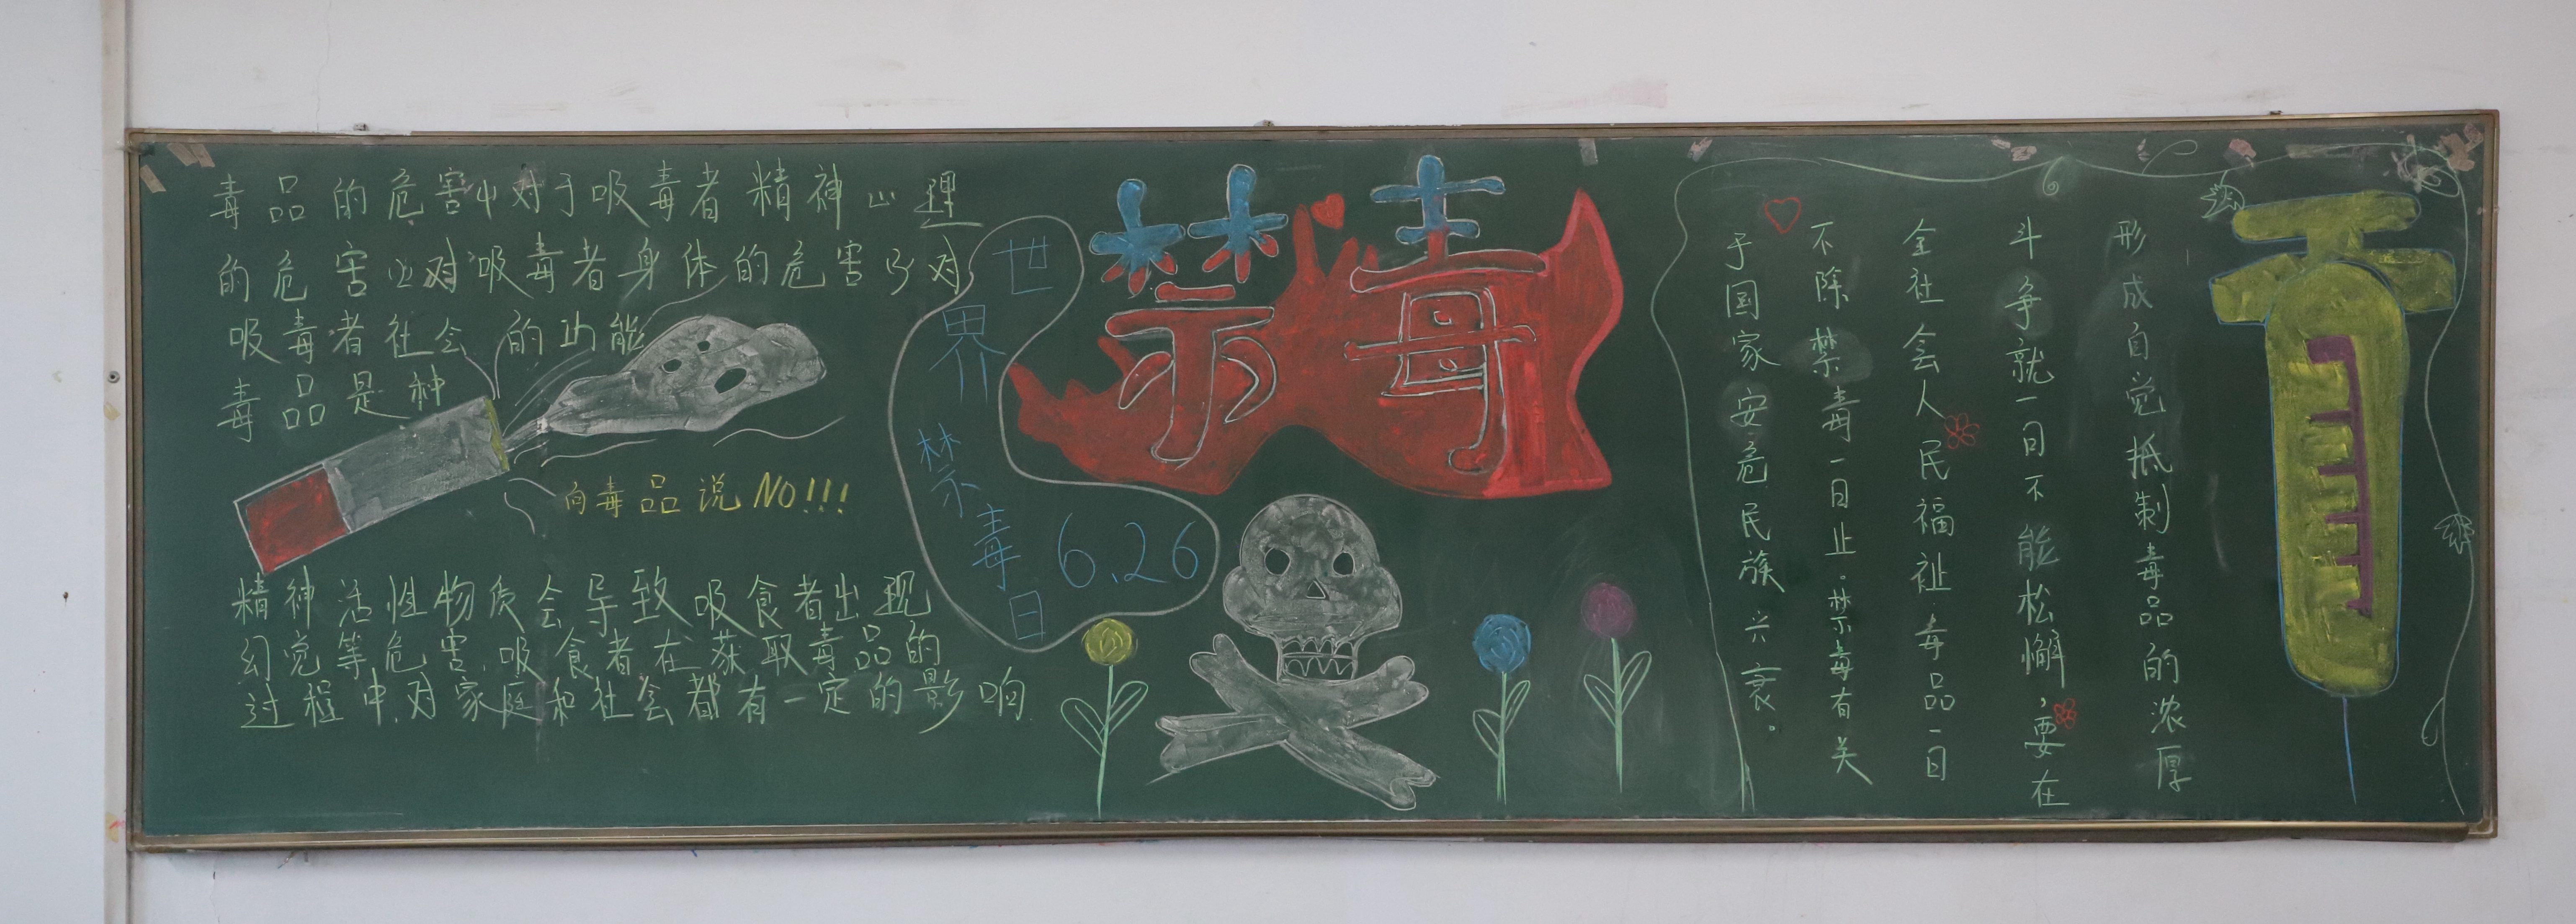 毒品的危害(1)对于吸毒者精神心理
的危害(2)对吸毒者身体的危害(3)对
吸毒者社会的功能
毒品是种
向毒品说NO!!!
精神活性物质会导致吸食者出现
幻觉等危害.吸食者在获取毒品的
过程中.对家庭和社会都有一定的影响
世界禁毒日
6.26
禁毒
形成自觉抵制毒品的浓厚
斗争就一日不能松懈,要在
全社会人民福祉毒品一日
不除禁毒一日止。禁毒有关
于国家安危民族兴衰。